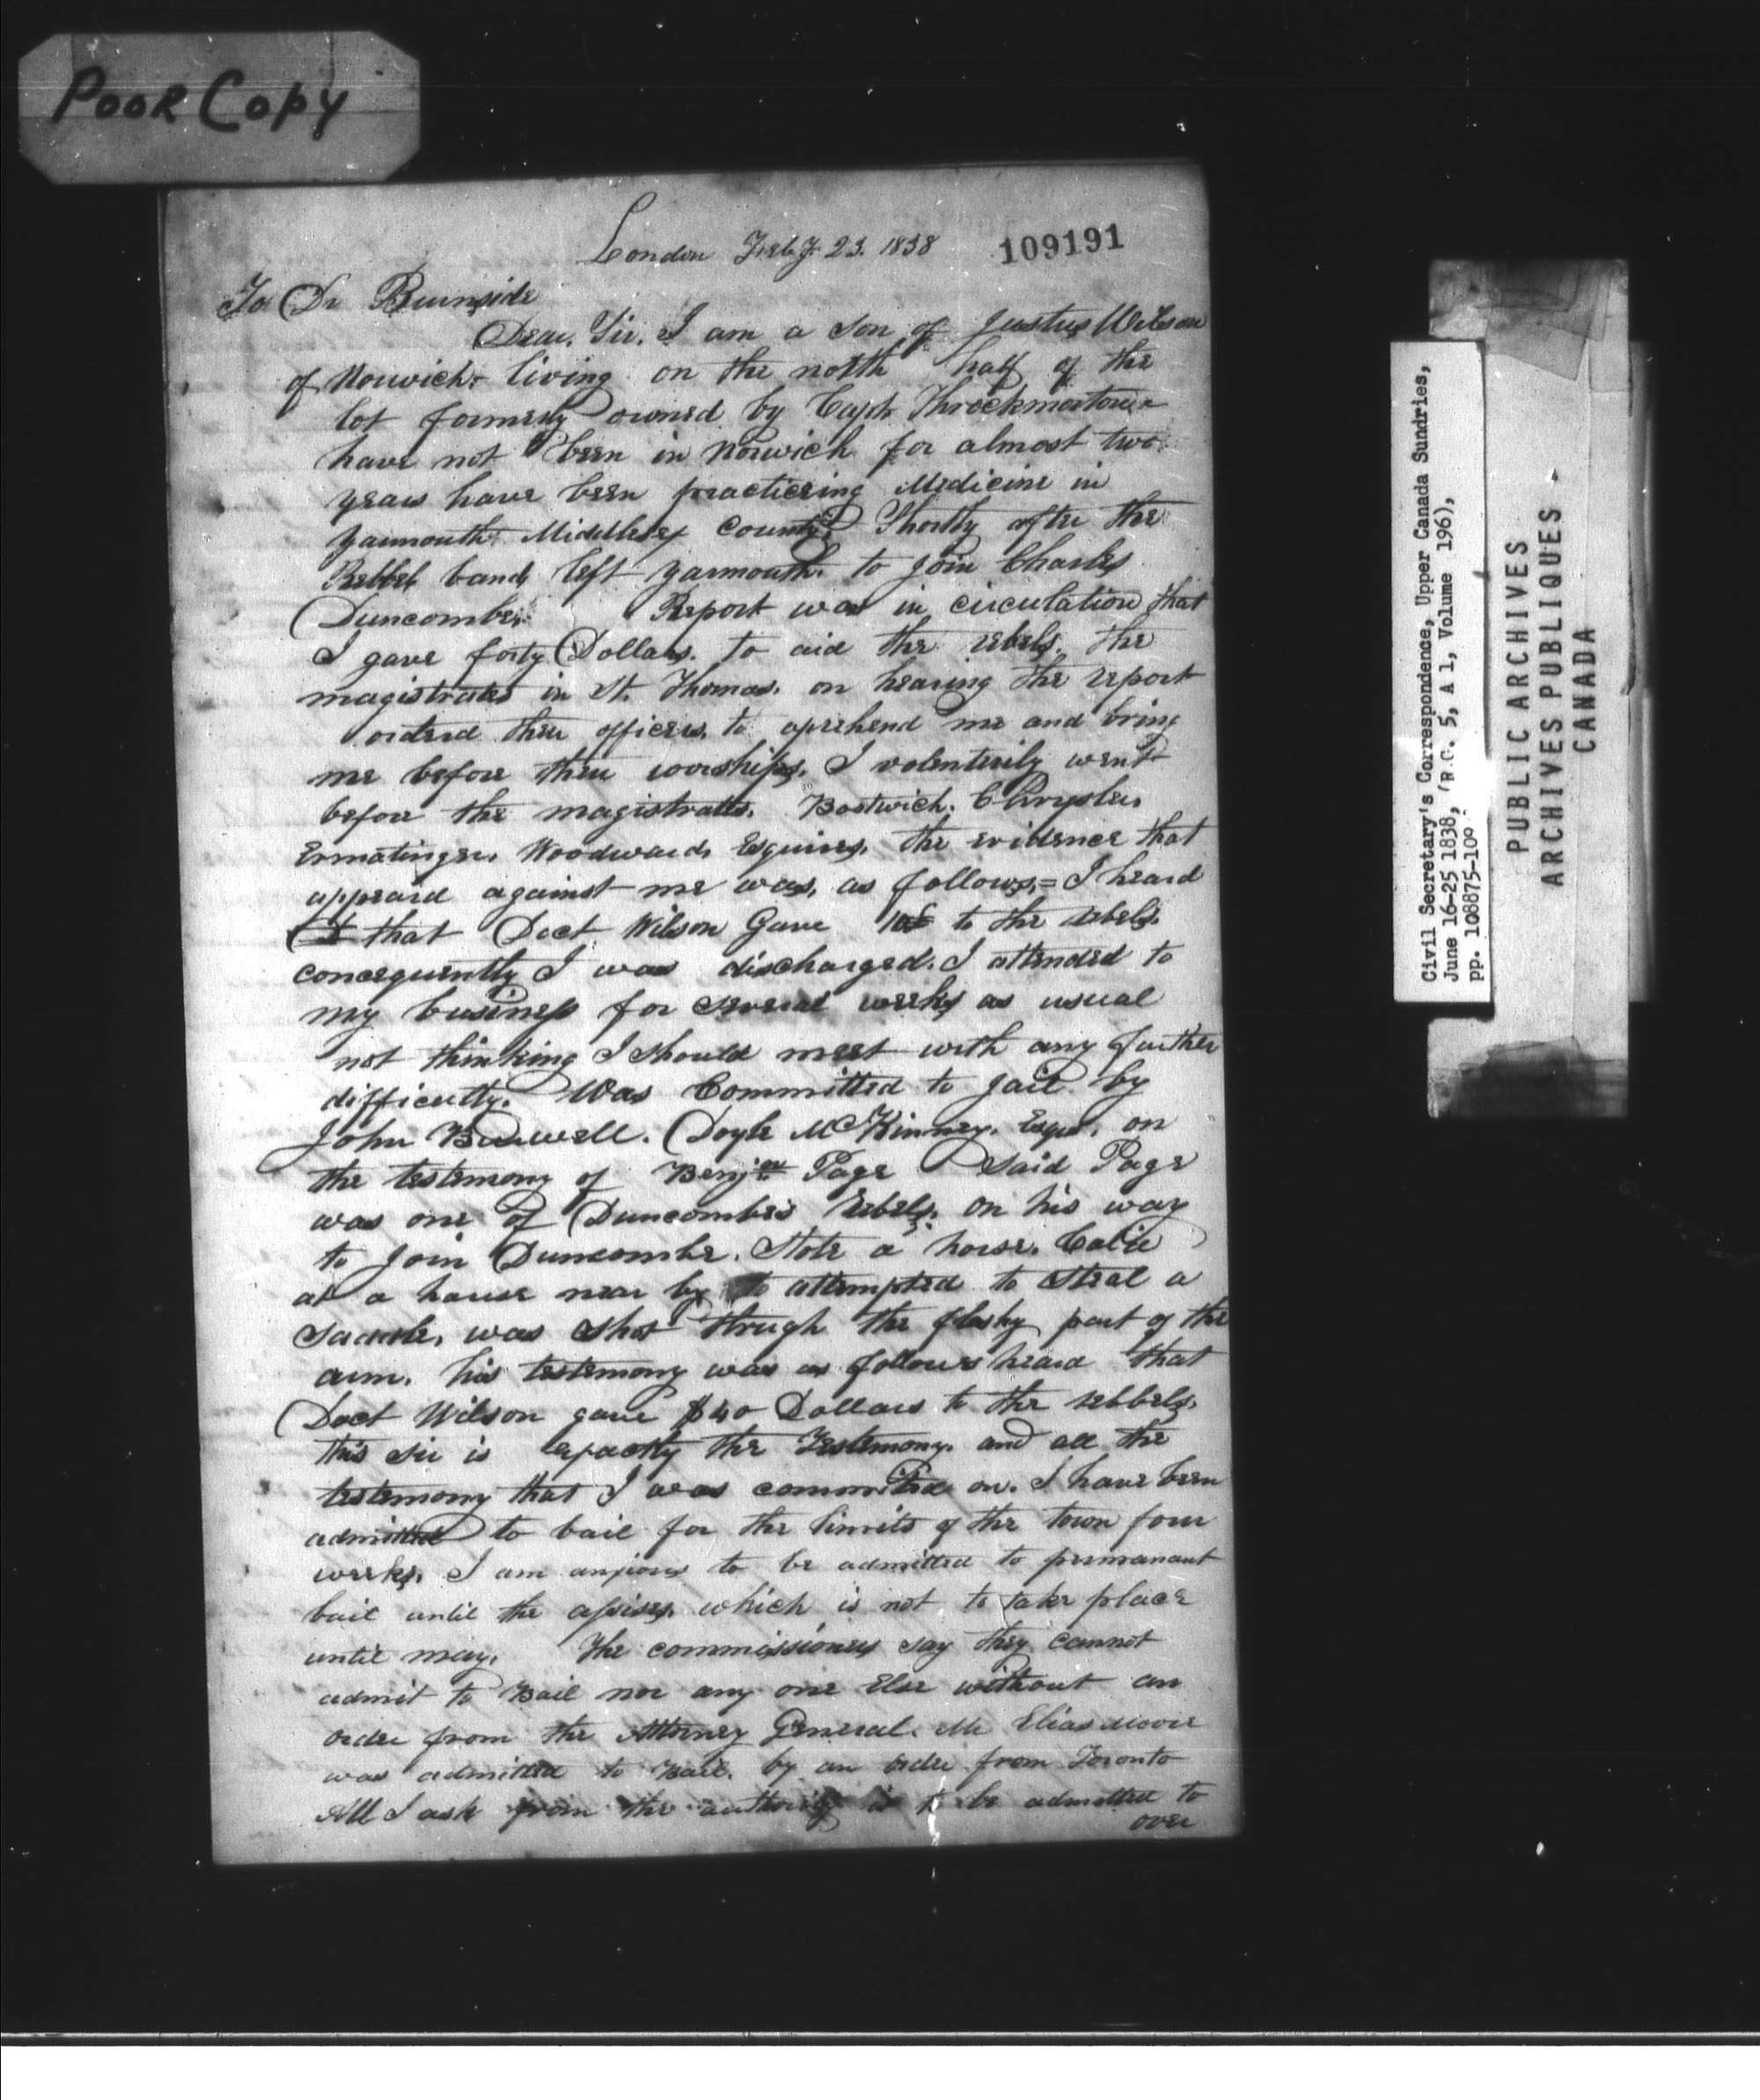 Poor Copy
London Feby. 23. 1838
109191
To Dr Burnside
Dear, Sir, I am a son of Justus Wilson
of Norwich living on the north half of the
lot formerly owned by Capt. Throckmorton
have not been in Norwich for almost two
years have been practiceing Medicine in
Yarmouth Middlesex County. Shortly after the
Rebbel band left Yarmouth to join Charles
Duncombe. Report was in circulation that
I gave forty Dollars. to aid the rebels. the
magistrates in St. Thomas. on hearing the report
orderd their officers to aprehend me and bring
me before their worships. I volenterily went
before the magistrates. Bostwick. Chrysler.
Ermatinger. Woodward. Esquires. the evidence that
appeard against me was, as follows,= I heard
that Doct Wilson Gave to the rebels.
concequently I was discharged. I attended to
my business for several weeks as usual
not thinking I should meet with any further
difficulty. Was Committed to jail by
John Burwell. Doyle McKinney. Esqrs. on
the testimony of Benjn Page Said Page
was one of Duncombe's rebels. on his way
to join Duncombe. Stole a horse. Calld
at a house near by to attempted to steal a
saddle, was shot through the fleshy part of the
arm. his testimony was as follows heard that
Doct Wilson gave $40 Dollars to the rebbels.
this sir is expactly the Testemony. and all the
testemony that I was committed on. I have been
admitted to bail for the limits of the town four
weeks. I am anxious to be admitted to permanant
bail until the assises. which is not to take place
until may. The commissioners say they cannot
admit to Bail nor any one Else without an
order from the Attorney General. Mr Elias Moore
was admitted to Bail. by an order from Toronto
All I ask from the authority is to be admitted to
over
Civil Secretary's Correspondence, Upper Canada Sundries,
June 16-25 1838, (R.G. 5, A 1, Volume 196),
pp. 108875-109
PUBLIC ARCHIVES
ARCHIVES PUBLIQUES
CANADA